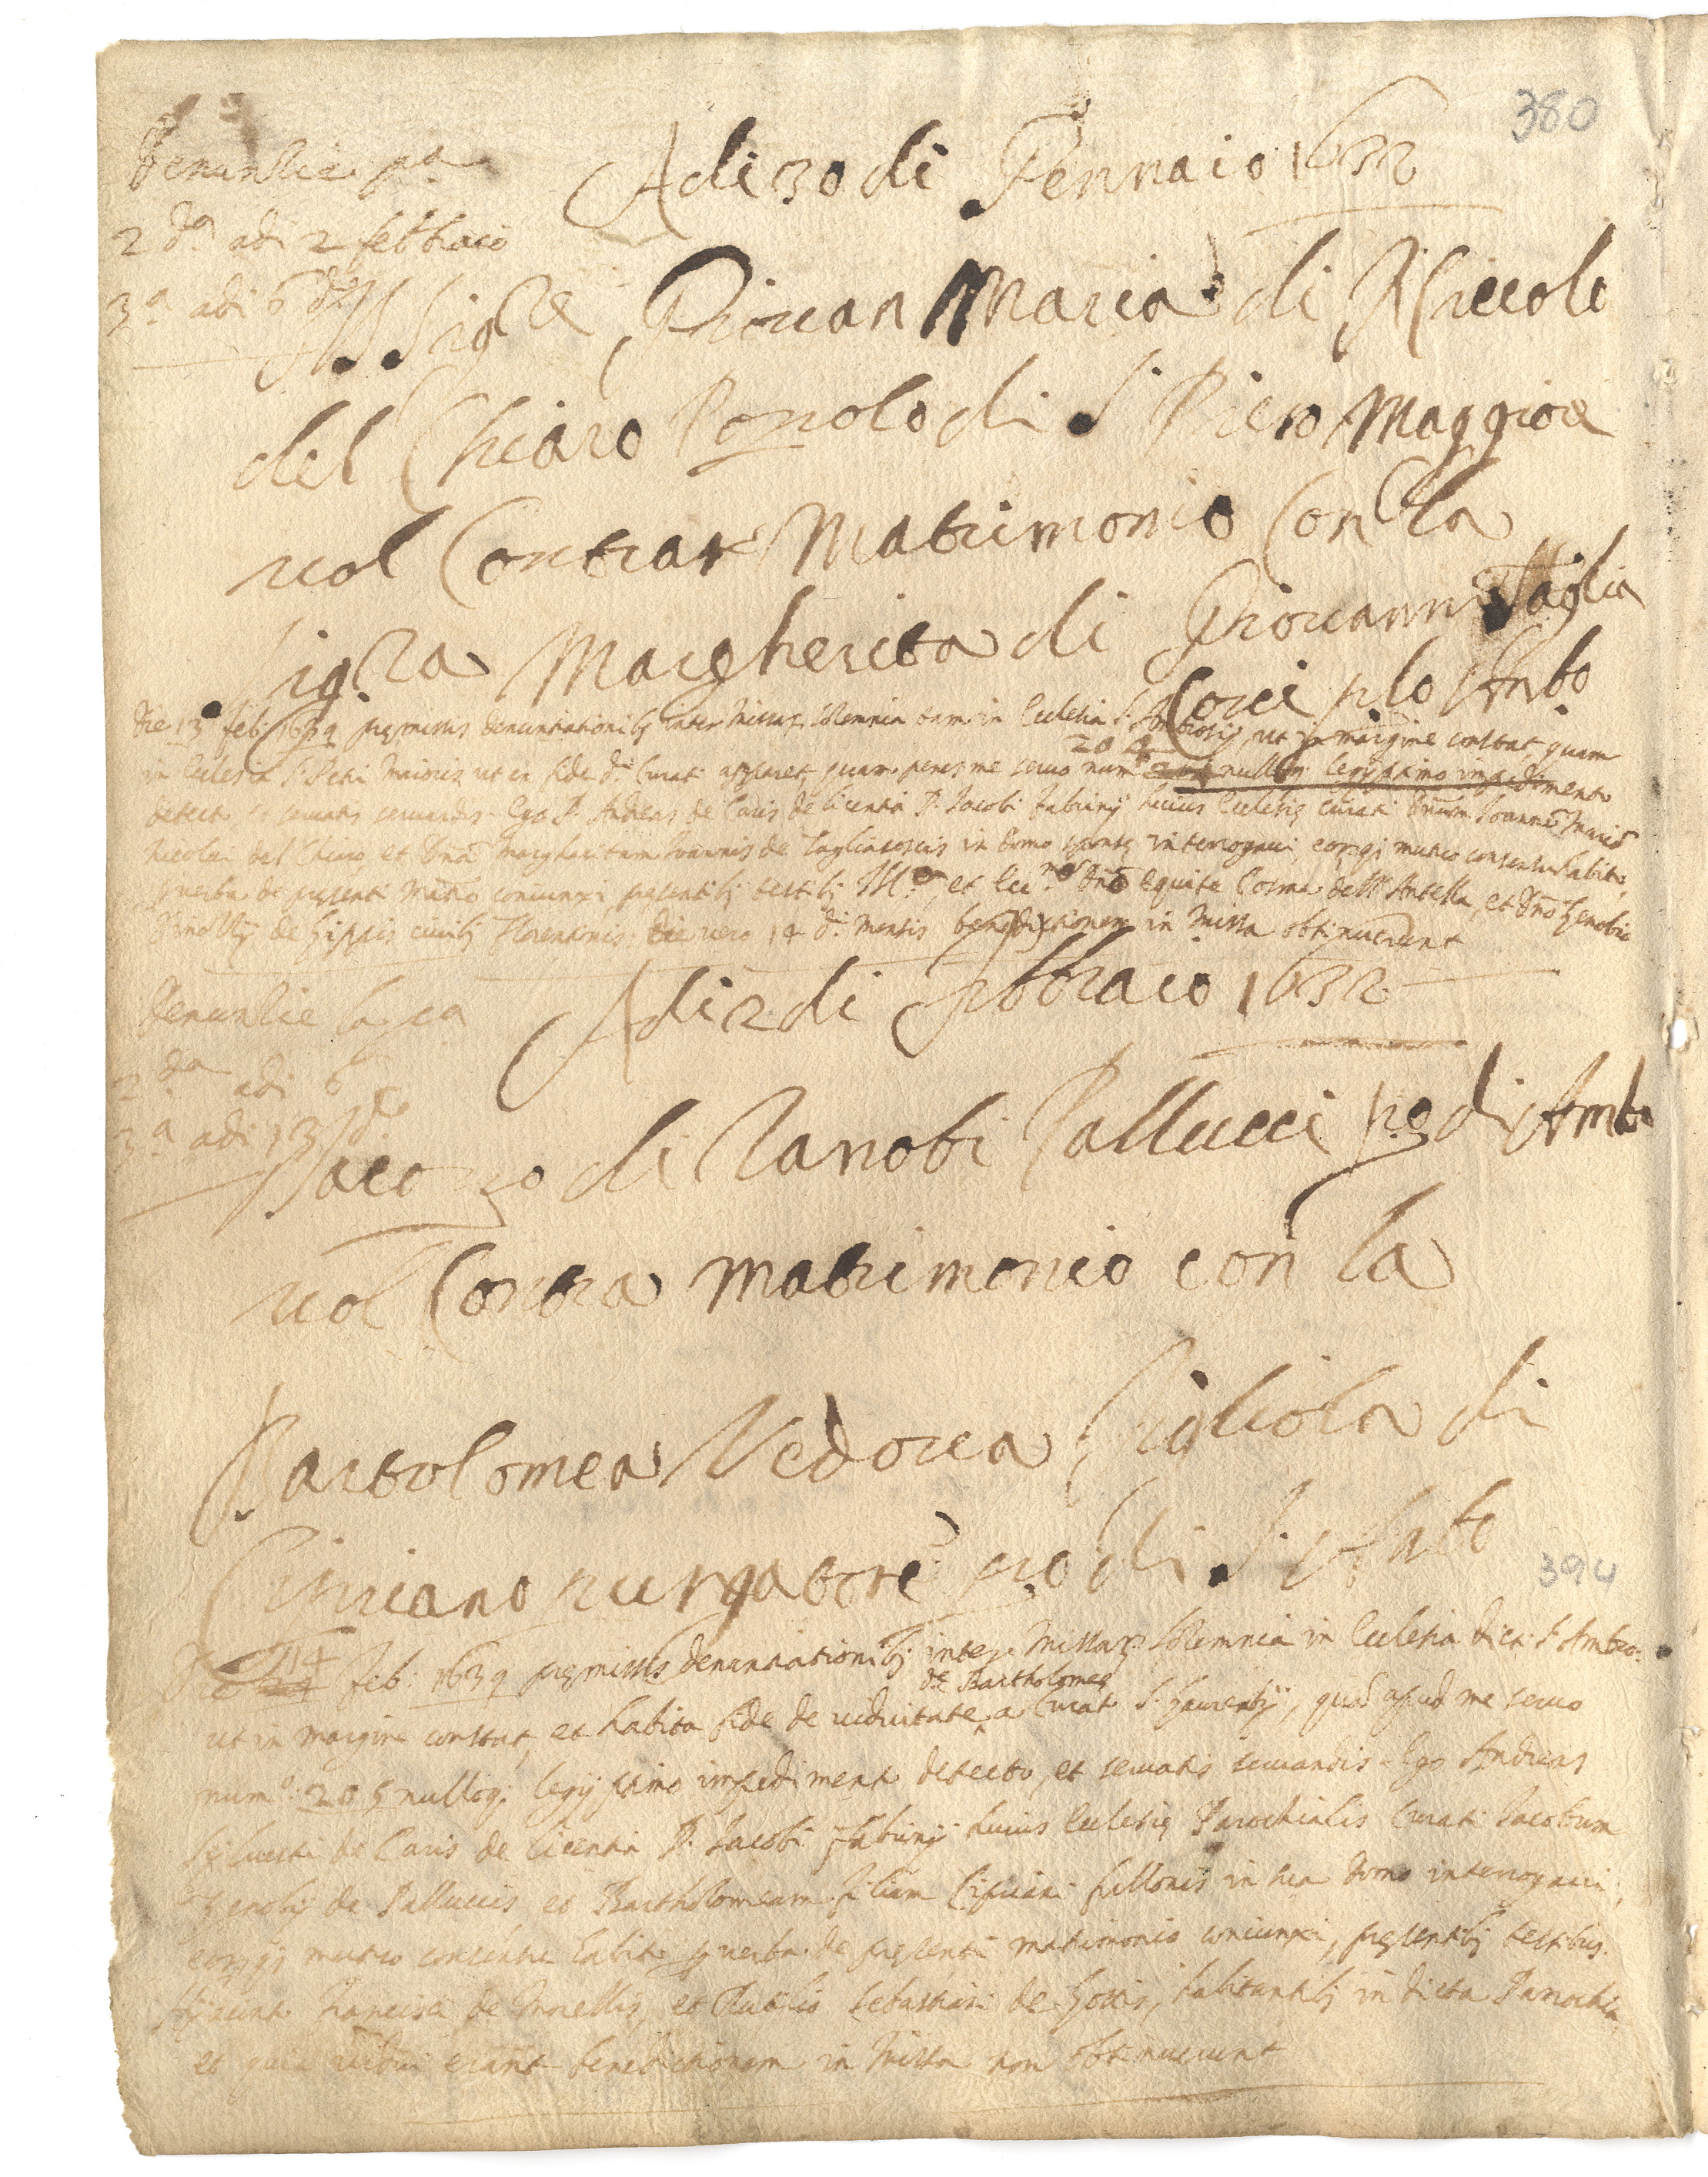 380
Denuntie pa
2da adi 2 febbraio
3a adi 6 do
Adi 30 di Gennaio 1632
Il Sigre Giovan Maria di Niccolo
del Chiaro Popolo di S Piero Maggiore
vol Contrar Matrimonio Con la
Sigra Margherita di Giovanni Taglia
Cocci plo Anbo
Die 13 feb: 1632 premissis denuntiationibus inter Missarum solemnia tam in Ecclesia S. Ambrosij, ut in margine constat, quam
in Ecclesia S. Petri Maioris ut ex fide di Curati apparet, quam penes me servo numo 204 nulloque legiptimo impedimento
detecto et servatis servandis. Ego P. Andreas de Caris de licentia P. Jacobi Fabrinij huius Ecclesie curati Dnum Joannem Mariam
Nicolai del Chiaro, et Dnam Margheritam Joannis de Tagliacociis in domo sponse interrogavi, eorumque mutuo consensu habito,
per verba de presenti Matrio coniunxi, presentibus testibus Mo, et Ecc.mo Dno Equite Cosma dell'Antella, et Dno Zenobio
de Zippis civibus Florentinis. Die vero 14 di Mensis benedictionem in Missa obtinuerunt
Adi 2 di febbraio 1632
Denuntie la pa
2da adi 6
3a adi 13 do
Jacopo di Zanobi Pallucci po di Ambo
vol Contra matrimonio con la
Bartolomea Vedova figliola di
Cipriano purgatore po di S. Anbo
394
Die 14 feb: 1632 premissis denuntiationibus inter Missarum solemnia in Ecclesia dicti S. Ambro:
ut in margine constat, et habita fide de viduitate de Bartholomee a Curato S. Laurentij, quam apud me servo
numo: 205 nulloque legiptimo impedimento detecto, et servatis servandis. Ego Andreas
Sylvestri de Caris de licentia P. Jacobi Fabrinij huius Ecclesie Parochialis Curati Jacobum
Zenobij de Palluccis, et Bartholomeam filiam Cipriani fullonis in sua domo interrogavi,
eorumque mutuo consensu habito per verba de presenti matrimonio coniunxi, presentibus testibus
Francisci de Morellis, et Sebastiani de habitantibus in dicta Parochia,
et quia vidui erant benedictionem in Missa non obtinuerunt